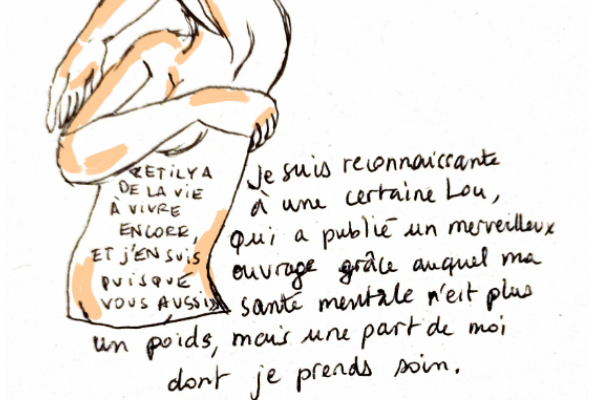 « ET IL Y A
DE LA VIE
À VIVRE
ENCORE,
ET J'EN SUIS
PUISQUE
VOUS AUSSI »
Je suis reconnaissante
à une certaine Lou,
qui a publié un merveilleux
ouvrage grâce auquel ma
santé mentale n'est plus
un poids, mais une part de moi
dont je prends soin.